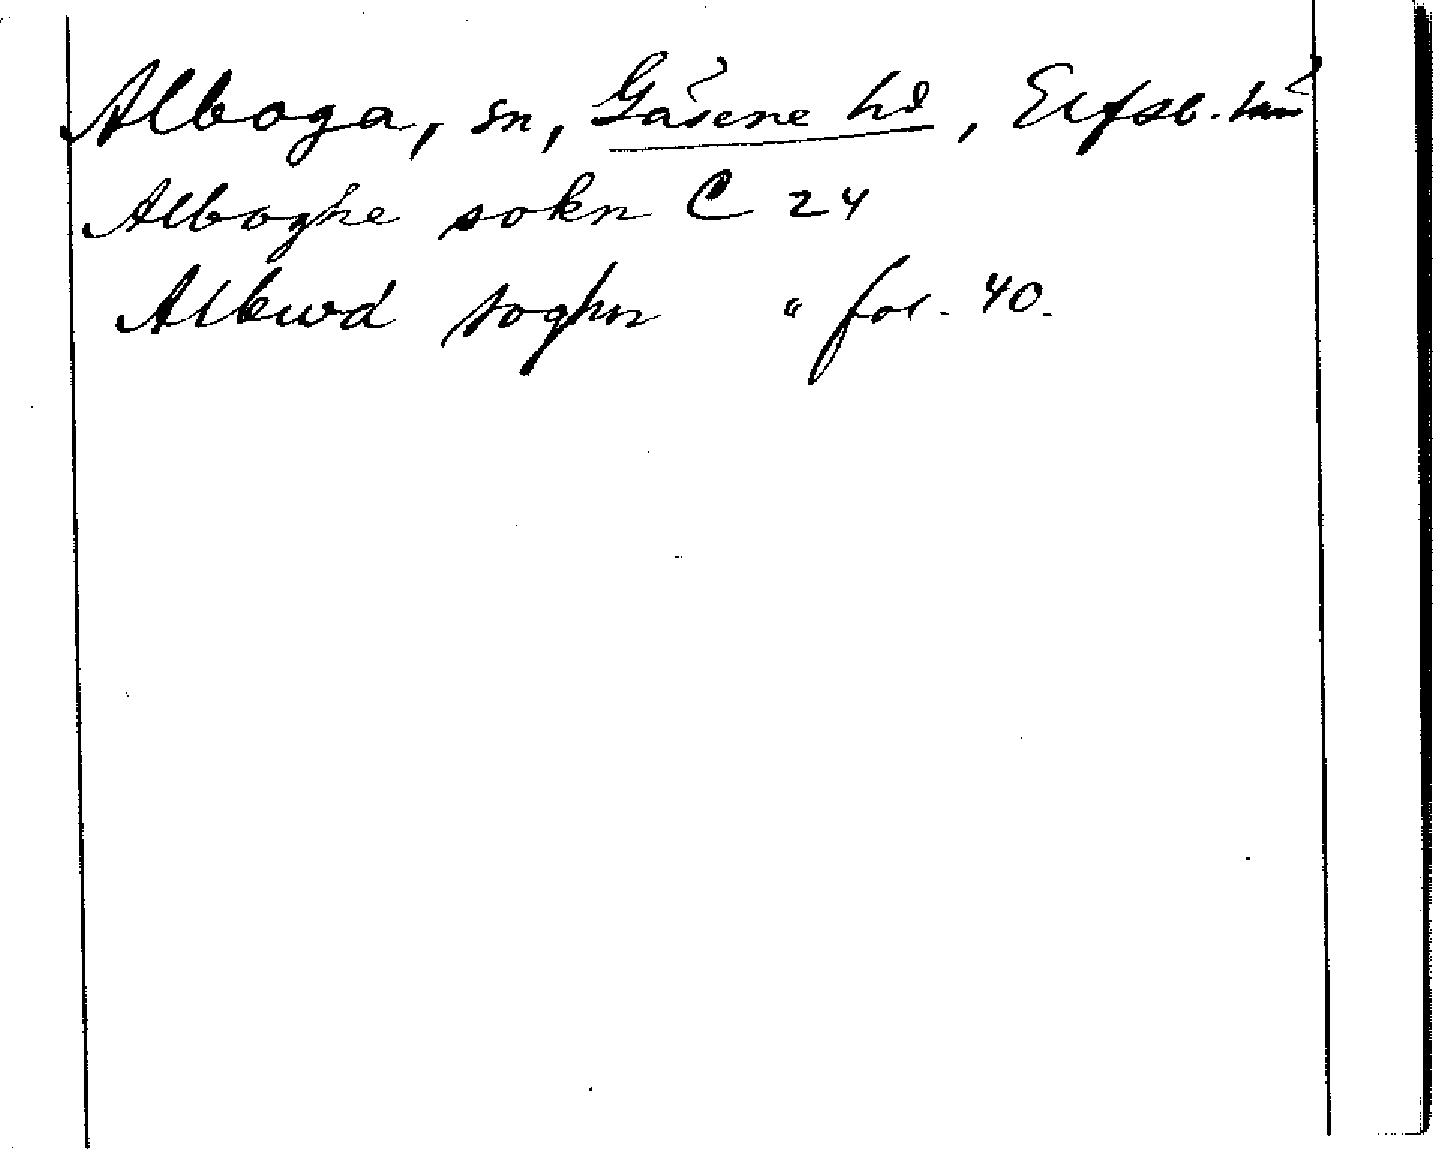 Alboga, sn, Gäsene hd, Elfsb. län
Alboghe sokn C 24
Albwa soghn " fol. 40.